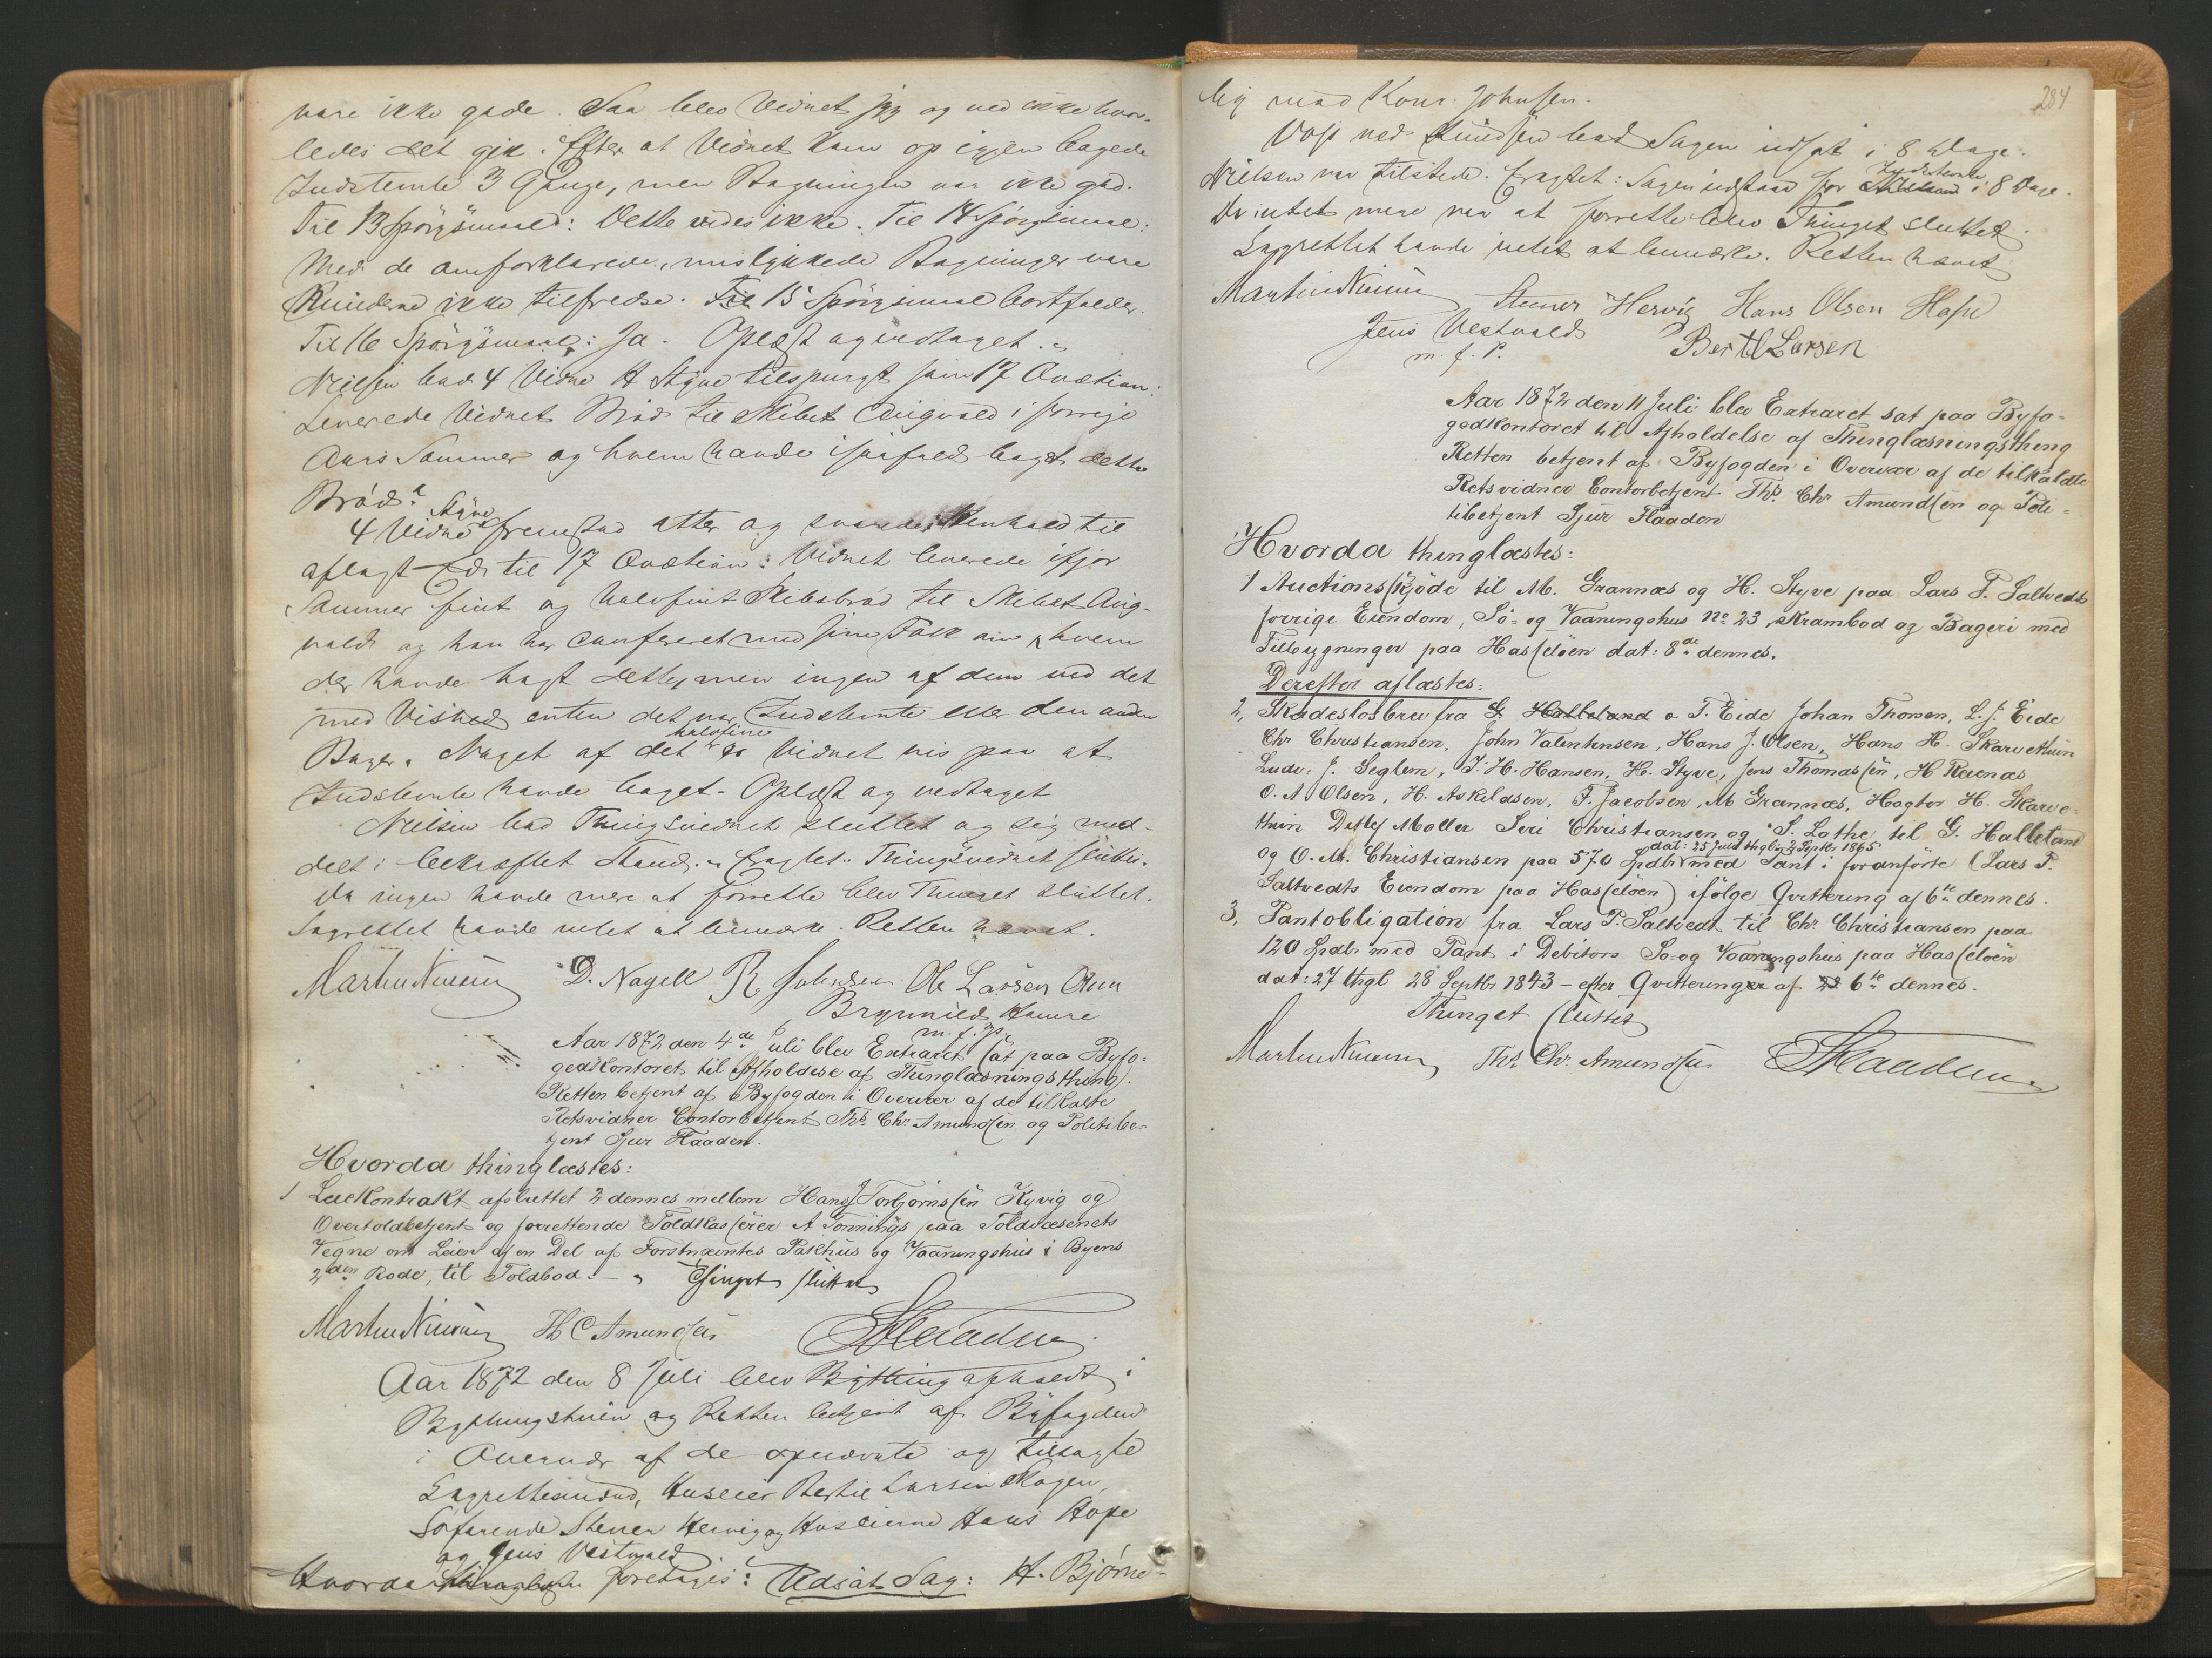 vare ikke gode. Saa blev Vidnet syg og ved ikke hvor-
ledes det gik. Efter at Vidnet kom op igjen bagede
Indstevnte 3 Gange, men Bagningen var ikke god.
Til 13 Spörgsmaal: Dette vides ikke. Til 14 Spörgsmaal:
Med de omforklarede, mislykkede Bagninger vare
Kunderne ikke tilfredse. Til 15 Spörgsmaal bortfalder.
Til 16 Spörgsmaal: Ja. Oplæst og vedtaget.
Nielsen bad 4 Vidne H Styve tilspurgt som 17 Qvæstion:
Leverede Vidnet Bröd til Skibet Avigvald i forrige
Aars Sommer og hvem havde isaafald bagt dette
Bröd?
4 Vidne Styve fremstod atter og svarede i Henhold til
aflagt Ed til 17 Qvæstion: Vidnet leverede ifjor
Sommer fint og halvfint Skibsbröd til Skibet Avig-
vald og han har confereret med sine Folk om hvem
der havde bagt dette, men ingen af dem ved det
med Vished enten det var Indstevnte eller den anden
Bager. Noget af det halvfine er Vidnet vis paa at
Indstevnte havde baget. Oplæst og vedtaget
Nielsen bad Thingsvidnet sluttet og sig med-
delt i bekræftet Stand. Eragtet: Thingsvidnet sluttes.
Da ingen havde mere at forrette blev Thinget sluttet.
Lagrettet havde intet at bemærke. Retten hævet.
Martin Nissen D. Nagell R Ole Larsen Aun
Brynnild Hamre
m. f. P.
Aar 1872 den 4de Juli blev Extraret sat paa Byfo-
gedkontoret til Afholdelse af Thinglæsningsthing.
Retten betjent af Byfogden i Overvær af de tilkaldte
Retsvidner Contorbetjent Ths. Chr. Amundsen og Politibe-
tjent Sjur Flaaden.
Hvorda thinglæstes:
1 Leiekontrakt afsluttet 2 dennes mellem Hans J Torbjörnsen Kyvig og
Overtoldbetjent og forrettende Toldkasserer A Tonnings paa Toldvæsenets
Vegne om Leien af en Del af Forstnævntes Pakhus og Vaaningshus i Byens
2den Rode, til Toldbod. Thinget sluttet
Martin Nissen H C Amundsen SFlaaden
Aar 1872 den 8 Juli blev Bything afholdt i
Bythingstuen og Retten betjent af Byfogden
i Overvær af de opnævnte og tilsagte
Lagrettesmænd, Huseier Bertil Larsen Skogen,
Söfarende Stener Hervig og Huseierne Hans Hope
og Jens Vestvold
Hvorda foretages: Udsat Sag: H. Björne-
284
big mod Konr. Johnsen.
bad Sagen udsat i 8 Dage.
Nielsen var tilstede. Eragtet: Sagen udstaar for Indstevnte i 8 Dage.
Da intet mere var at forrette blev Thinget sluttet.
Lagrettet havde intet at bemærke. Retten hævet
Martin Nissen Stener Hervig Hans Olsen Hope
Jens Vestvold Bertil Larsen
m. f. P.
Aar 1872 den 11 Juli blev Extraret sat paa Byfo-
gedkontoret til Afholdelse af Thinglæsningsthing
Retten betjent af Byfogden i Overvær af de tilkaldte
Retsvidner Contorbetjent Ths. Chr Amundsen og Poli-
tibetjent Sjur Flaaden
Hvorda thinglæstes:
1 Auctionsskjöde til M. Grannæs og H. Styve paa Lars P. Saltvedts
forrige Eiendom, Sö- og Vaaningshus No. 23, Krambod og Bageri med
Tilbygninger paa Hasselöen dat: 8de dennes.
Derefter aflæstes:
2, Skadeslosbrev fra G Halleland o T. Eide Johan Thomsen, L. J. Eide
Chr Christiansen, John Valentinsen, Hans J. Olsen, Hans H. Skarvethun
Ludv. J. Seglem, J. H. Hansen, H. Styve, Jens Thomassen, H Revenæs
O. A Olsen, H. Askildsen, F. Jacobsen, M Grannæs, Hagtor H. Skarve-
thun Detlef Moller Seri Christiansen og S. Lothe til G. Halleland
og O. M. Christiansen paa 570 Spdlr dat: 25 Juli thgl: 2 Septbr 1865 med Pant i foranförte (Lars P.
Saltvedts Eiendom paa Hasselöen) ifölge Qvittering af 6te dennes.
3, Pantobligation fra Lars P. Saltvedt til Chr. Christiansen paa
120 Spdlr med Pant i Debitors Sö- og Vaaningshus paa Hasselöen
dat: 27 thgl 28 Septbr 1843 – efter Qvitteringer af 6te dennes.
Thinget sluttet
Martin Nissen Ths. Chr. Amundsen SFlaaden